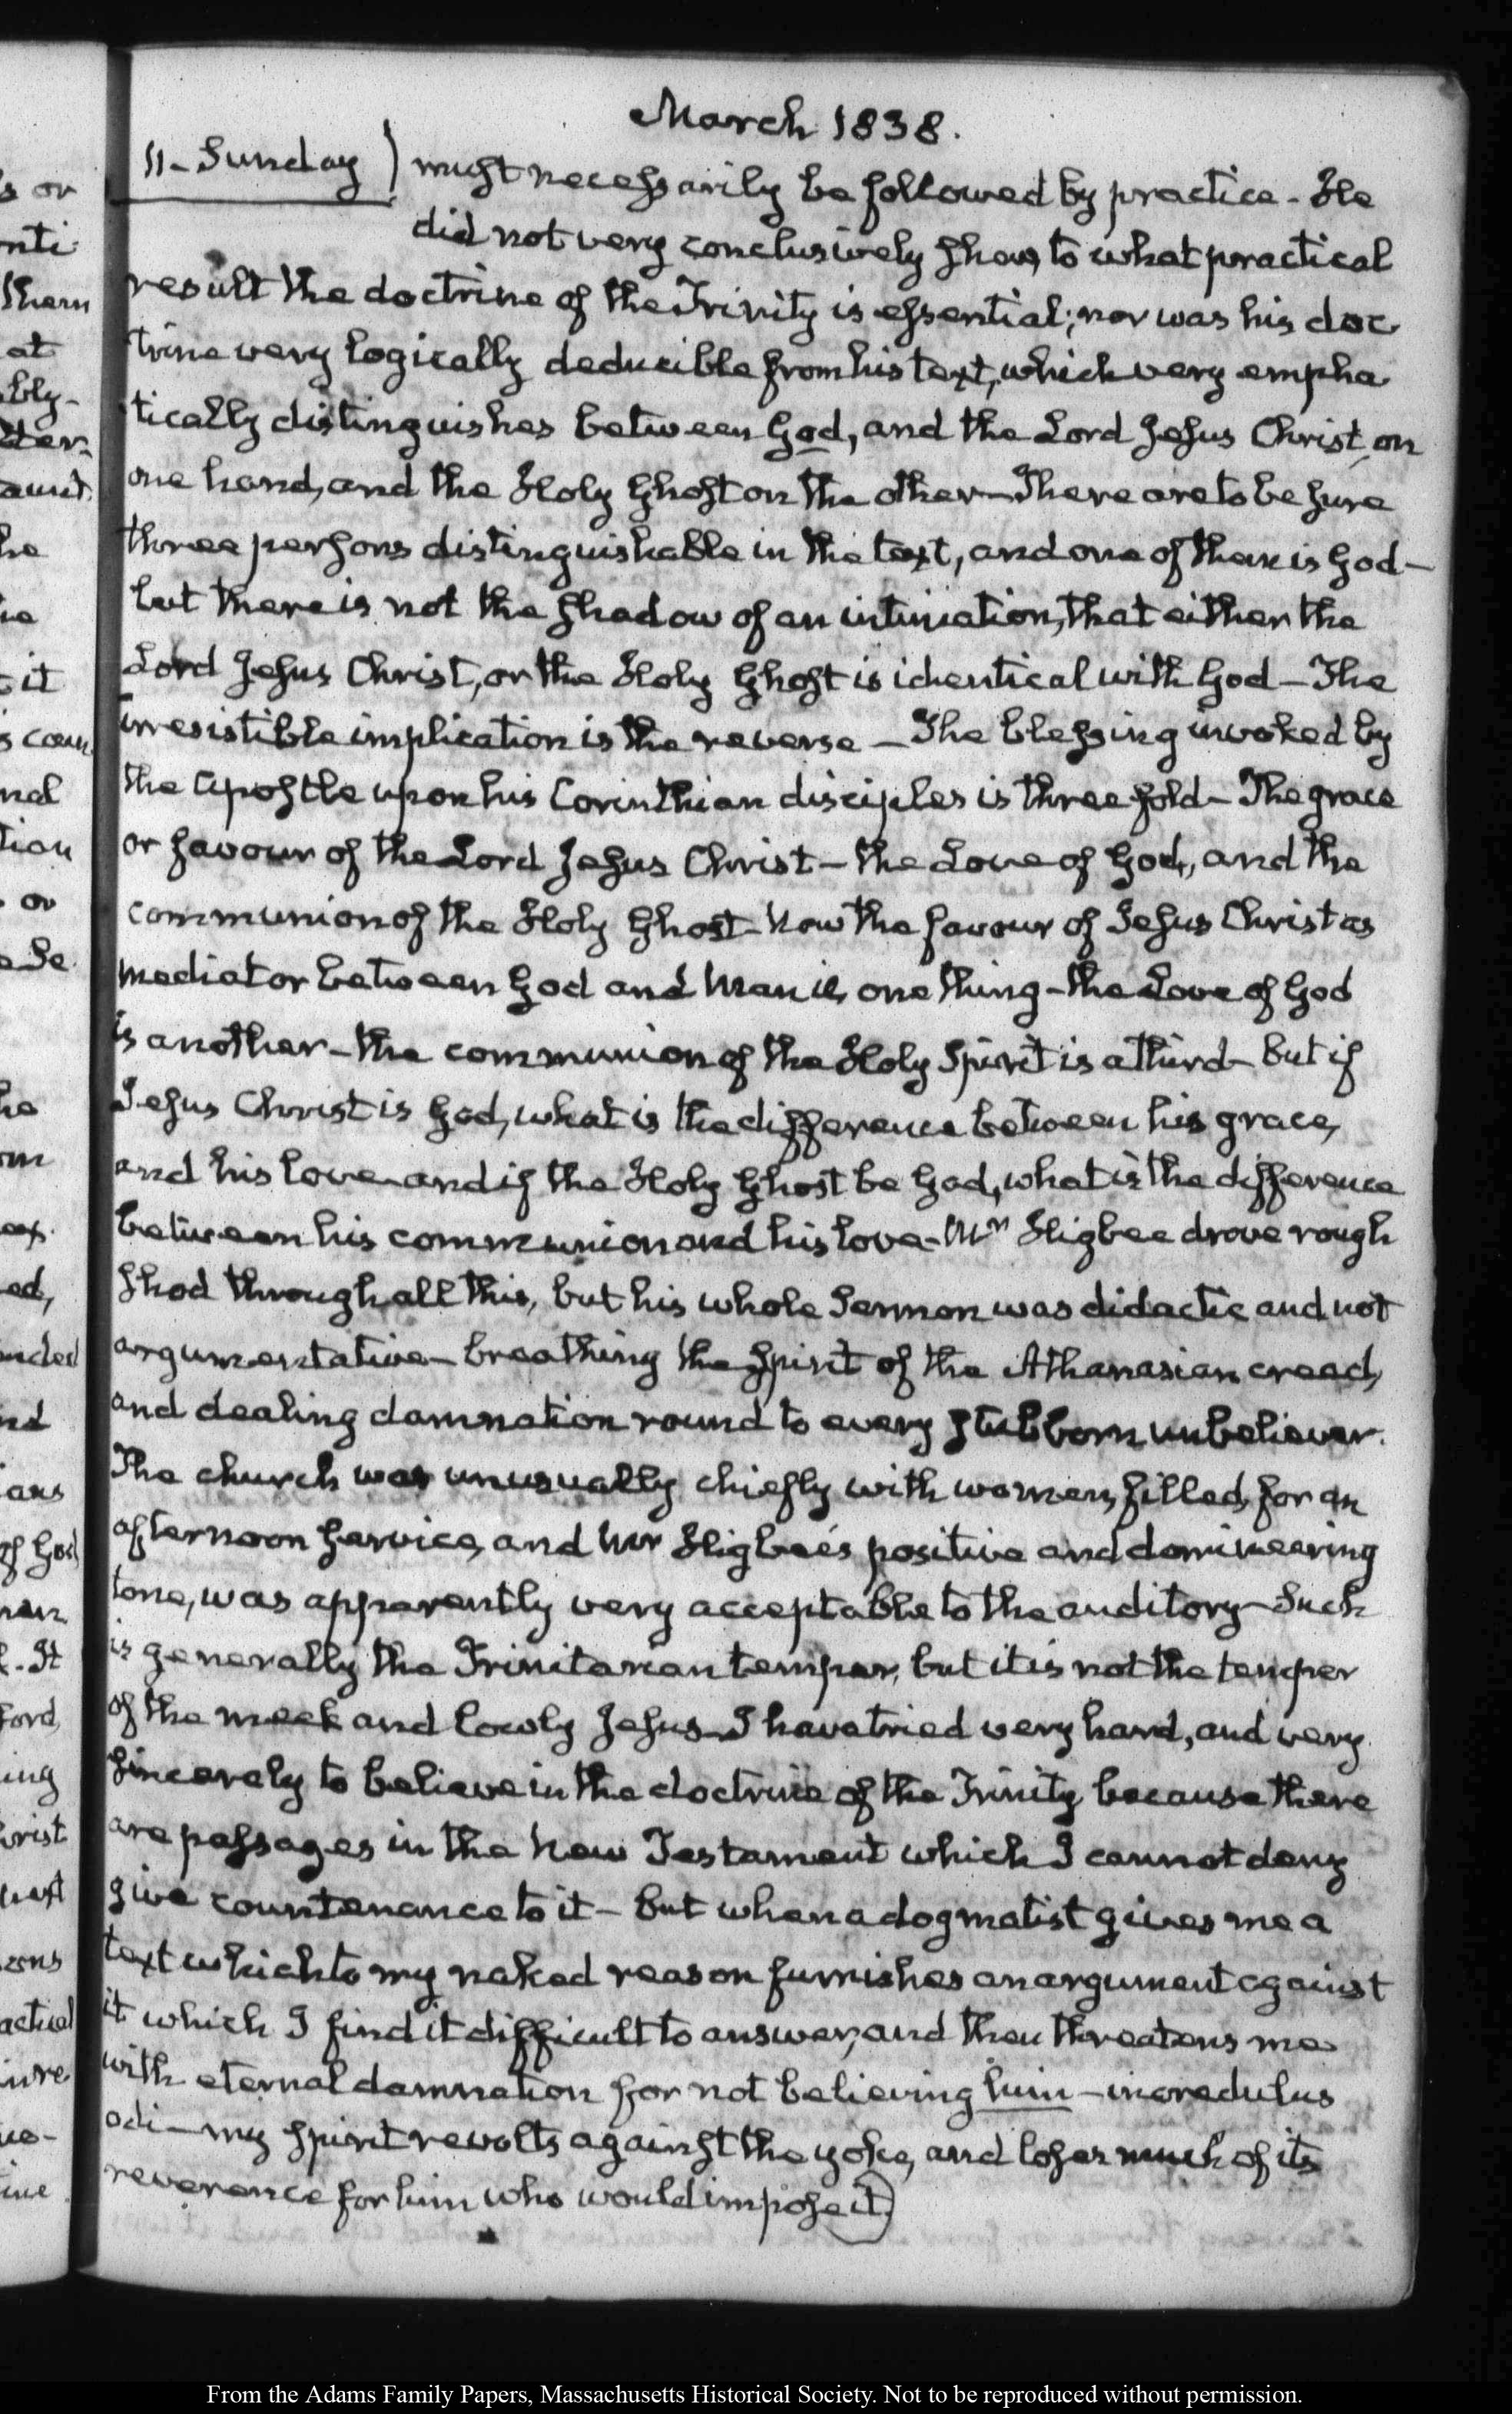 March 1838.
11. Sunday) must necessarily be followed by practice. He
did not very conclusively show to what practical
result the doctrine of the Trinity is essential; nor was his doc
trine very logically deducible from his text, which very empha
tically distinguishes between God, and the Lord Jesus Christ, on
one hand, and the Holy Ghost on the other—There are to be sure
three persons distinguishable in the text, and one of them is God—
but there is not the shadow of an intimation, that either the
Lord Jesus Christ, or the Holy Ghost is identical with God—The
irresistible implication is the reverse—The blessing invoked by
the Apostle upon his Corinthian disciples is threefold—The grace
or favour of the Lord Jesus Christ—the Love of God, and the
communion of the Holy Ghost—Now the favour of Jesus Christ as
mediator between God and Man is one thing—the Love of God
is another—the communion of the Holy Spirit is a third—But if
Jesus Christ is God, what is the difference between his grace,
and his love—and if the Holy Ghost be God, what is the difference
between his communion and his love—Mr Higbee drove rough
shod through all this, but his whole Sermon was didactic and not
argumentative—breathing the Spirit of the Athanasian creed,
and dealing damnation round to every stubborn unbeliever.
The church was unusually chiefly with women, filled, for an
afternoon service, and Mr Higbee's positive and domineering
tone, was apparently very acceptable to the auditory—Such
is generally the Trinitarian temper, but it is not the temper
of the meek and lowly Jesus—I have tried very hard, and very
sincerely to believe in the doctrine of the Trinity because there
are passages in the New Testament which I cannot deny
give countenance to it—But when a dogmatist gives me a
text which to my naked reason furnishes an argument against
it which I find it difficult to answer, and then threatens me
with eternal damnation for not believing him—incredulus
odi—my spirit revolts against the yoke, and loses much of its
reverence for him who would impose it.
From the Adams Family Papers, Massachusetts Historical Society. Not to be reproduced without permission.